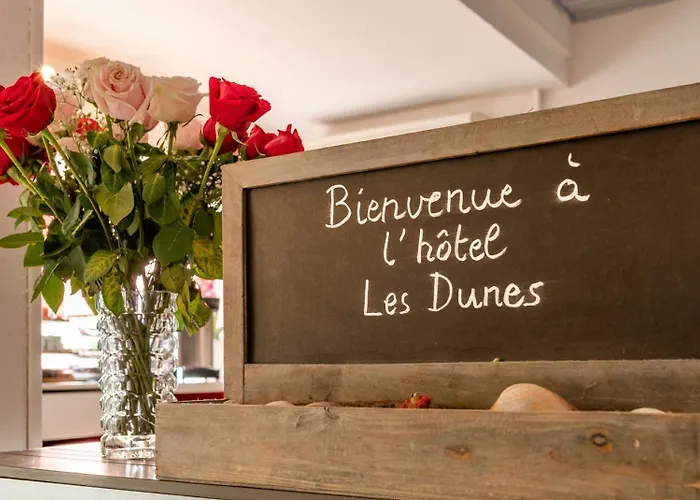 Bienvenue à
l'hôtel
Les Dunes